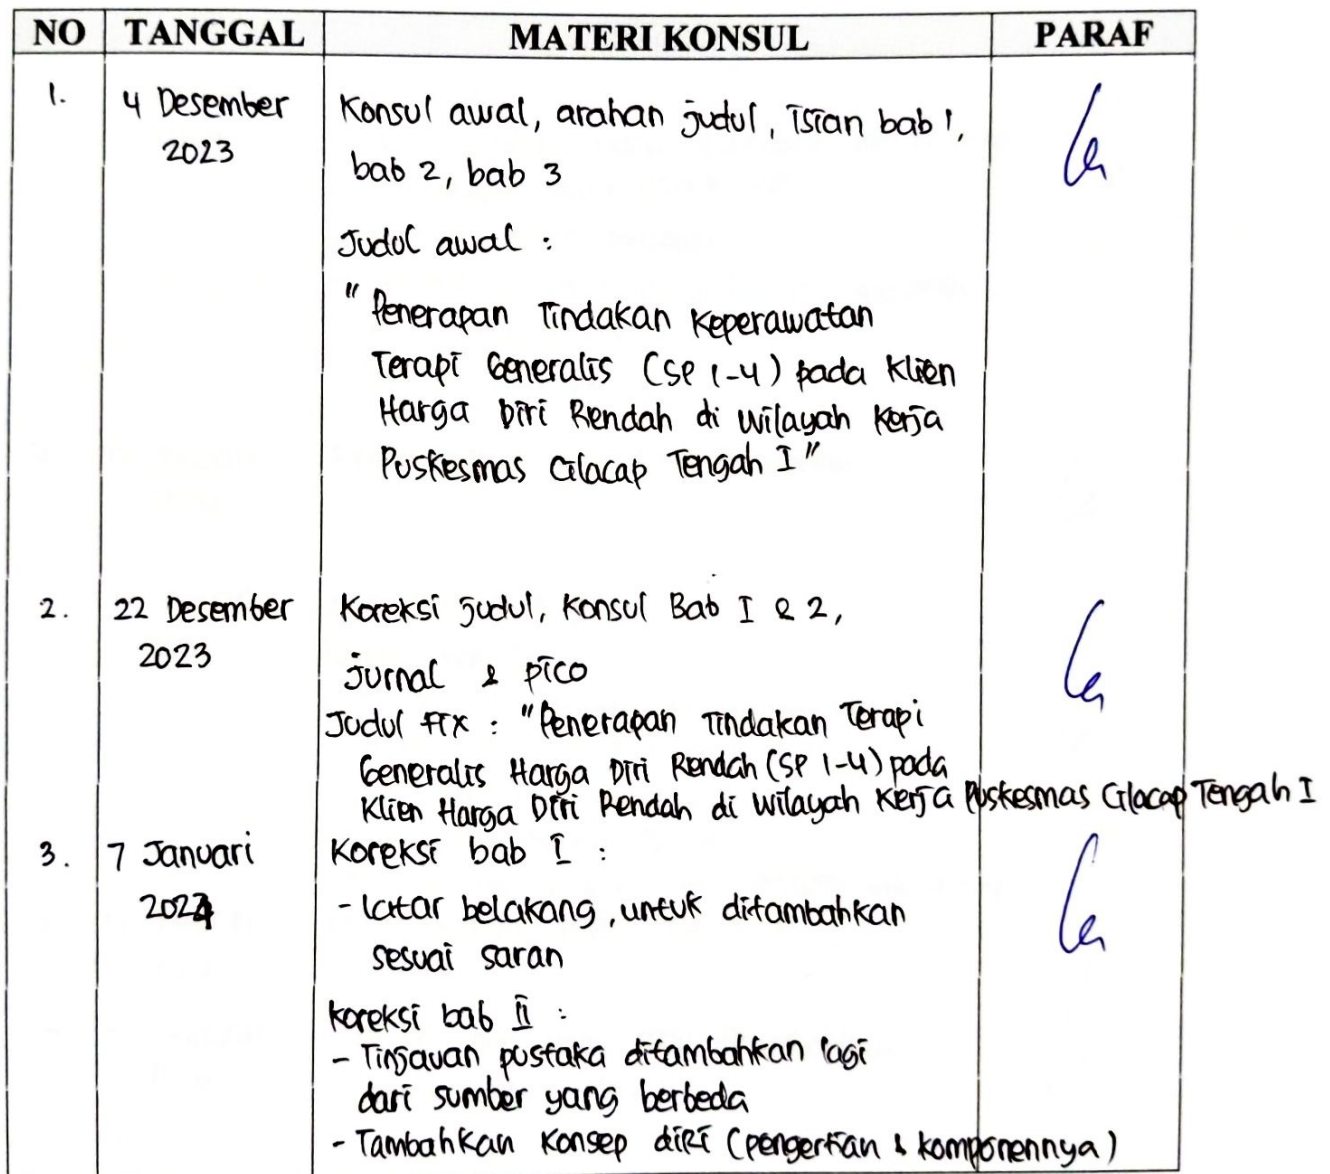 NO TANGGAL MATERI KONSUL PARAF
1. 4 Desember 2023
Konsul awal, arahan judul, isian bab 1,
bab 2, bab 3
Judul awal :
"Penerapan Tindakan Keperawatan
Terapi Generalis (SP 1-4) pada Klien
Harga Diri Rendah di Wilayah Kerja
Puskesmas Cilacap Tengah I"
2. 22 Desember 2023
Koreksi judul, Konsul Bab I & 2,
jurnal & pico
Judul fix : "Penerapan Tindakan Terapi
Generalis Harga Diri Rendah (SP 1-4) pada
Klien Harga Diri Rendah di Wilayah Kerja Puskesmas Cilacap Tengah I
3. 7 Januari 2024
Koreksi bab I :
- Latar belakang, untuk ditambahkan
sesuai saran
Koreksi bab II :
- Tinjauan pustaka ditambahkan lagi
dari sumber yang berbeda
- Tambahkan Konsep diri (pengertian & komponennya)